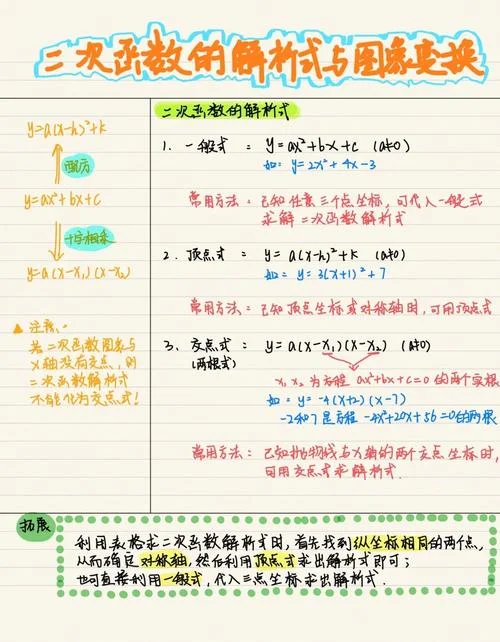 二次函数的解析式与图象变换
y=a(x-h)²+k
配方
y=ax²+bx+c
十字相乘
y=a(x-x₁)(x-x₂)
▲注意:
若二次函数图象与
x轴没有交点，则
二次函数解析式
不能化为交点式!
二次函数的解析式
1. 一般式 = y=ax²+bx+c (a≠0)
如= y=2x²+4x-3
常用方法: 已知任意三个点坐标，可代入一般式
求解二次函数解析式
2. 顶点式 = y=a(x-h)²+k (a≠0)
如= y=3(x+1)²+7
常用方法: 已知顶点坐标或对称轴时，可用顶点式
3. 交点式 = y=a(x-x₁)(x-x₂) (a≠0)
(两根式)
x₁ x₂ 为方程 ax²+bx+c=0 的两个实根
如= y=-4(x+2)(x-7)
-2和7是方程 -4x²+20x+56=0的两根
常用方法: 已知抛物线与x轴的两个交点坐标时,
可用交点式求解析式.
拓展
利用表格求二次函数解析式时，首先找到纵坐标相同的两个点,
从而确定对称轴，然后利用顶点式求出解析式即可；
也可直接利用一般式，代入三点坐标求出解析式.